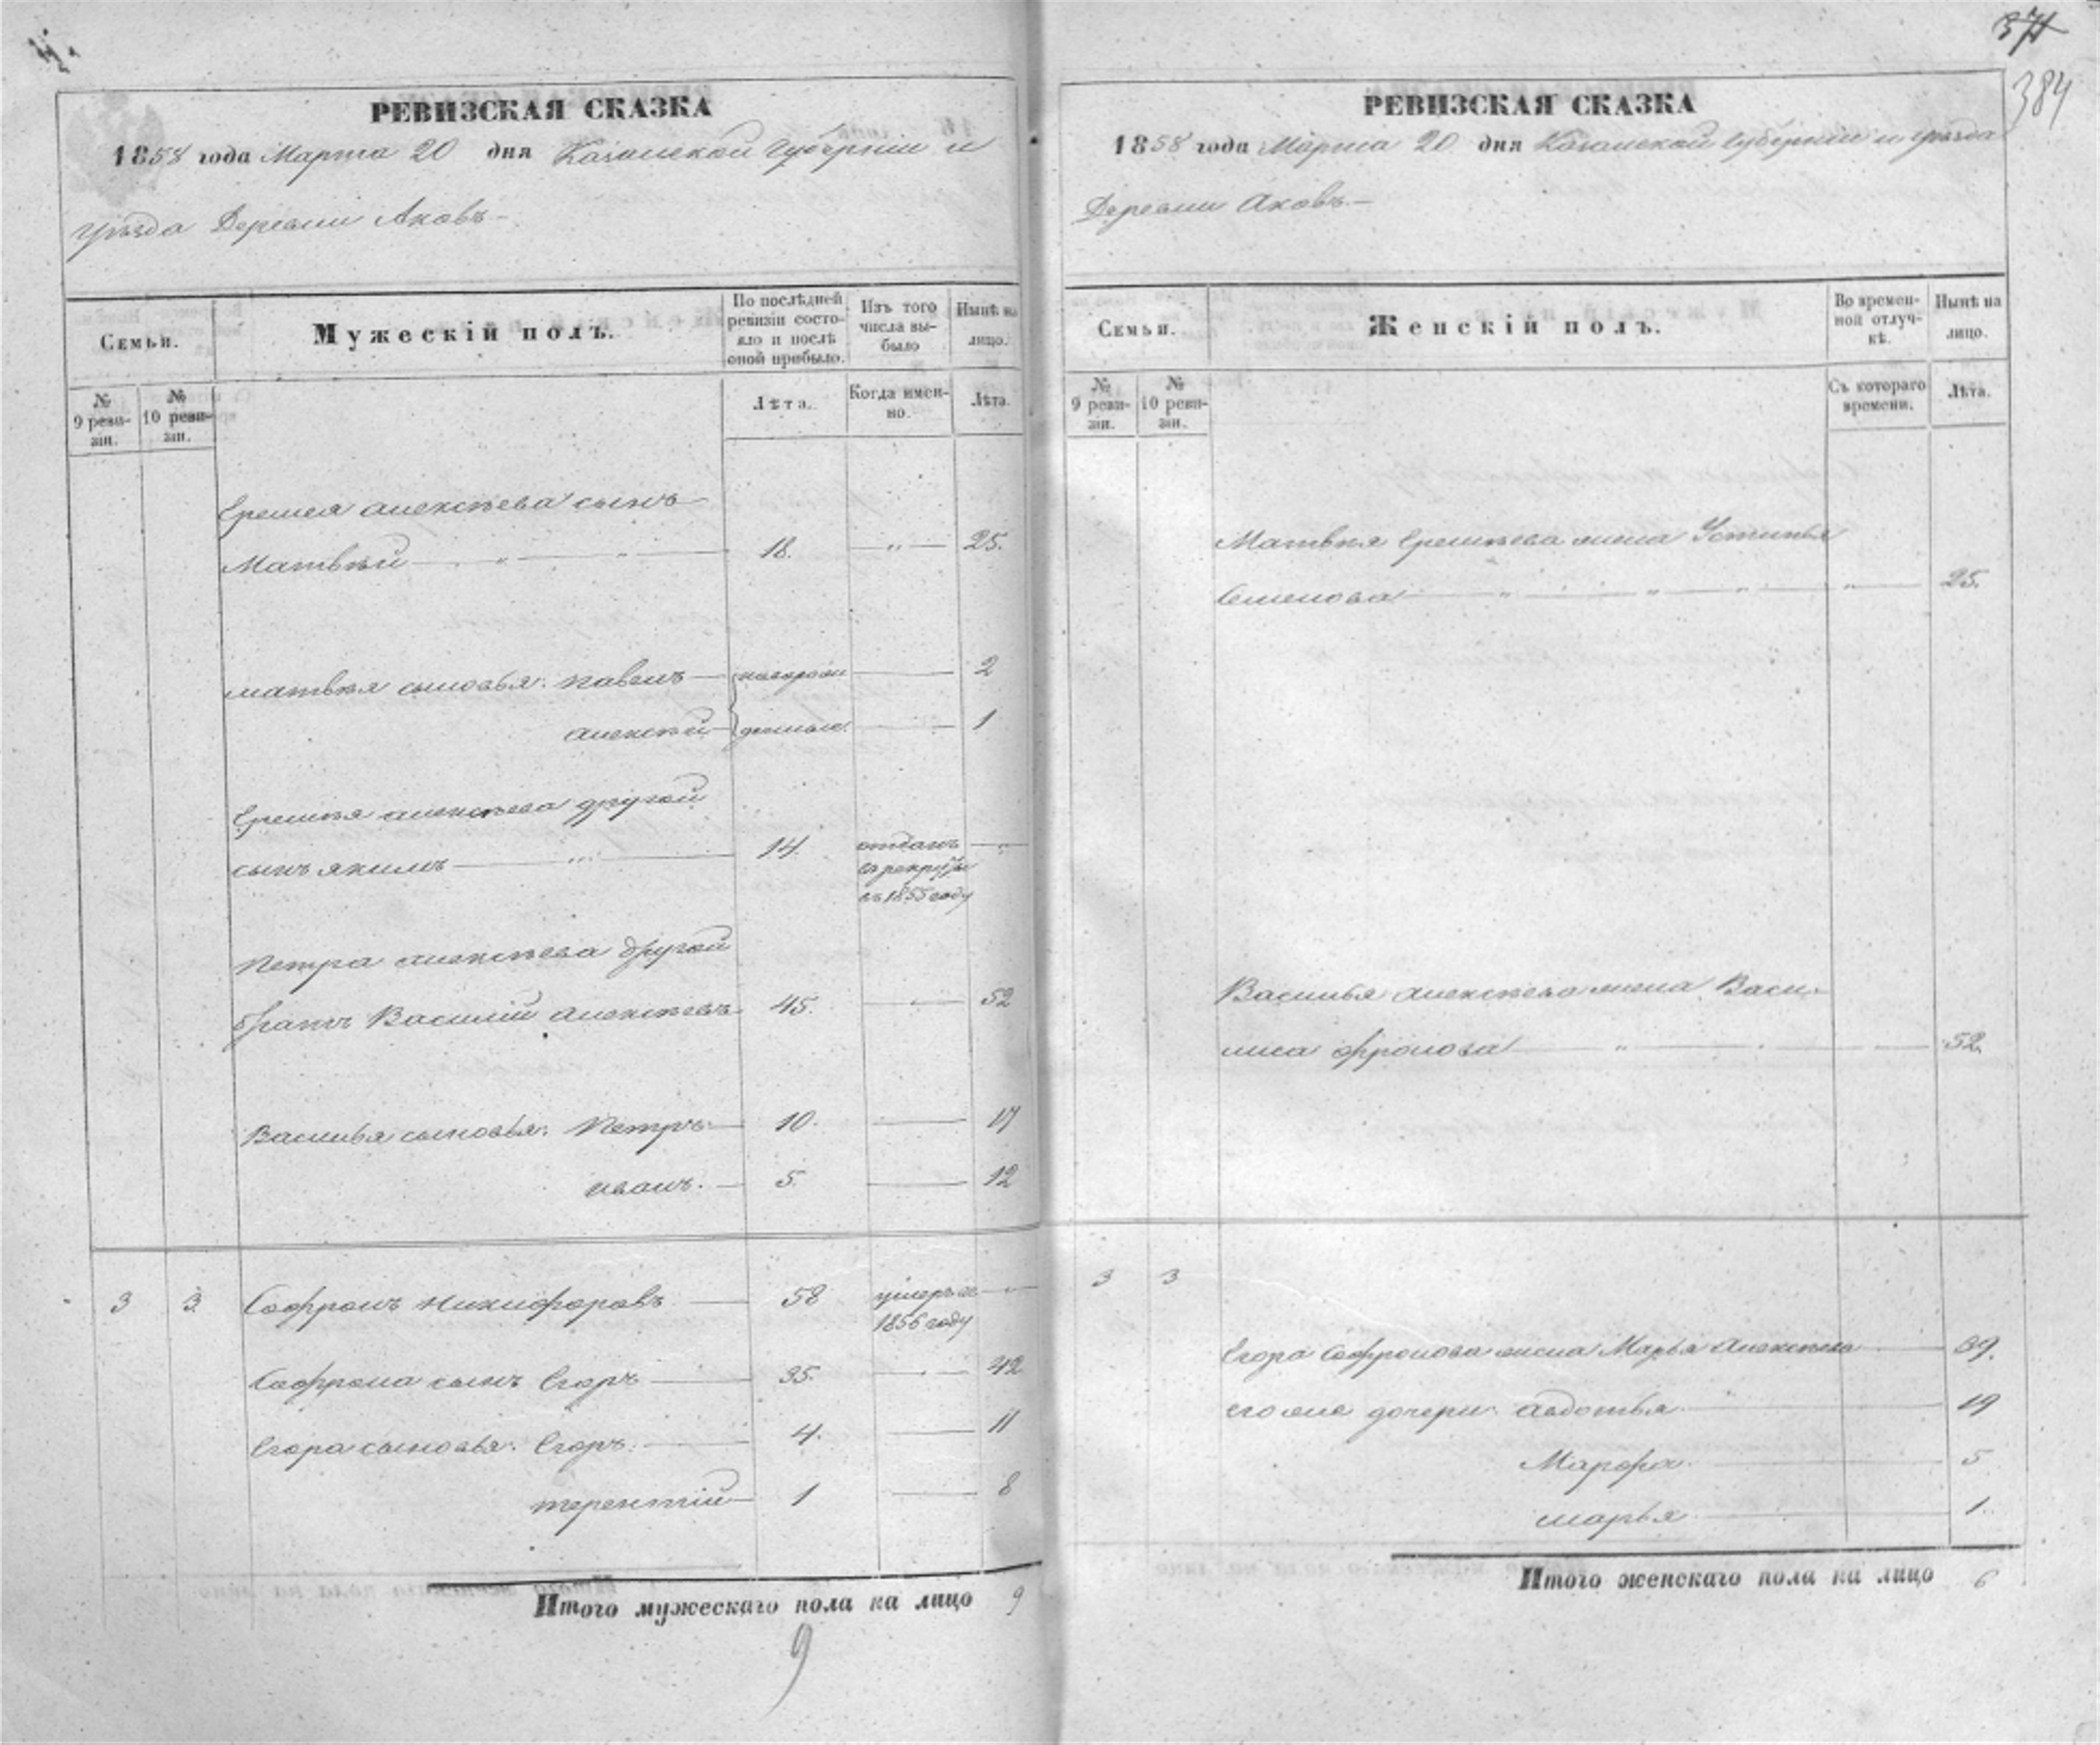 374
384
РЕВИЗСКАЯ СКАЗКА
1858 года Марта 20 дня Казанской Губерніи и
уѣзда Деревни Аковъ
Семьи.
Мужескій полъ.
По послѣдней ревизіи состояло и послѣ оной прибыло.
Изъ того числа выбыло
Нынѣ на лицо.
№ 9 ревизіи.
№ 10 ревизіи.
Лѣта.
Когда именно.
Лѣта.
Еремея алексѣева сынъ
Матвѣй 18. 25.
матвѣя сыновья: павелъ новорож 2
алексѣй денные 1
Еремѣя алексѣева другой
сынъ якимъ 14. отданъ
въ рекруты
въ 1855 году
Петра алексѣева другой
братъ Василій алексѣевъ 45. 52
Василья сыновья: Петръ 10. 17
иванъ. 5. 12
3 3. Софронъ Никифоровъ 58 умеръ въ
1856 году
Софрона сынъ Егоръ 35. 42
Егора сыновья: Егоръ. 4. 11
терентій 1 8
Итого мужескаго пола на лицо 9
9
РЕВИЗСКАЯ СКАЗКА
1858 года Марта 20 дня Казанской Губерніи и уѣзда
Деревни Аковъ.
Семьи.
Женскій полъ.
Во временной отлучкѣ.
Нынѣ на лицо.
№ 9 ревизіи.
№ 10 ревизіи.
Съ котораго времени.
Лѣта.
Матвѣя Еремѣева жена Устинья
Семенова 25.
Василья алексѣева жена Васи-
лиса фролова 52.
3 3
Егора Софронова жена Марья Алексѣева 39.
его же дочери: авдотья 19
Марфа. 5
марья 1.
Итого женскаго пола на лицо 6